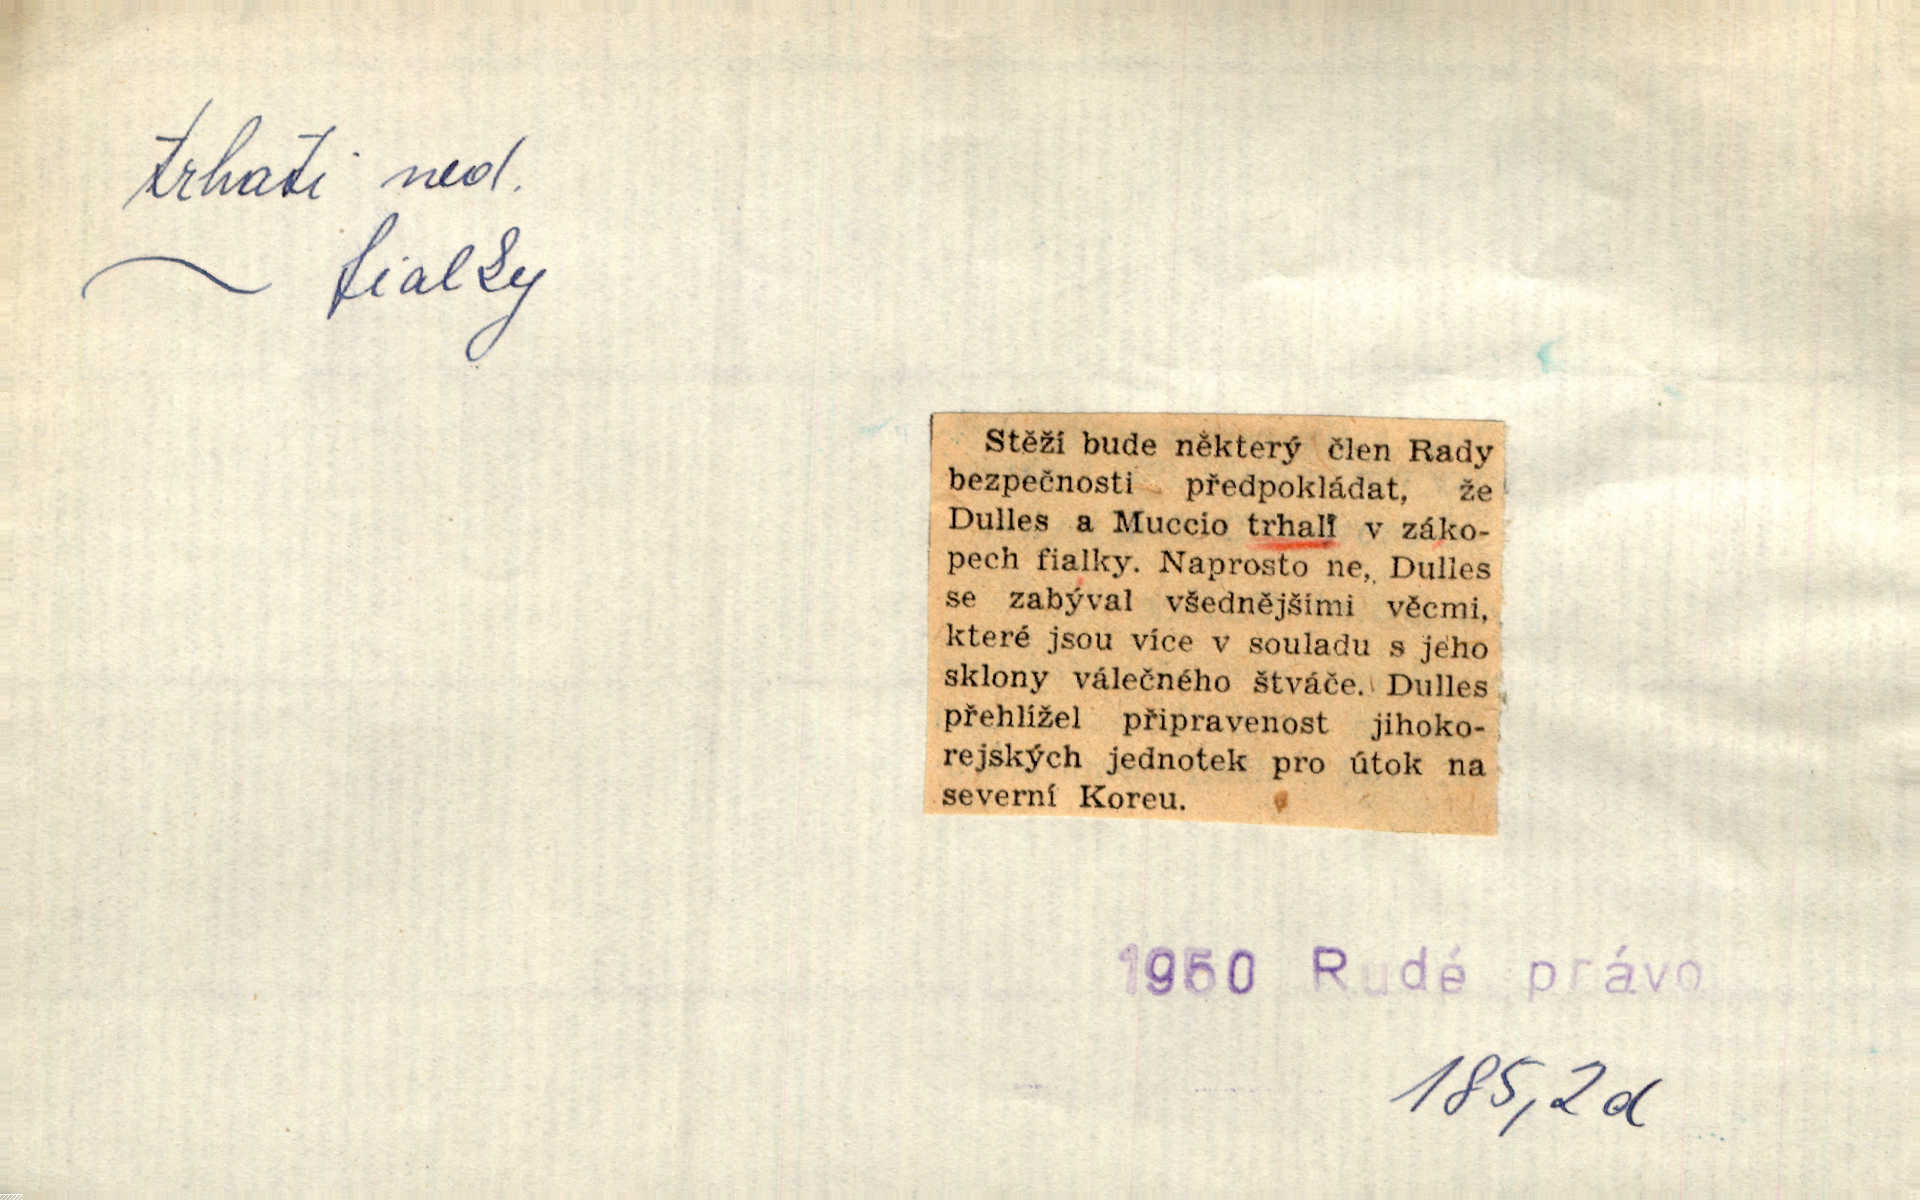 trhati ned.
~ fialky
Stěží bude některý člen Rady
bezpečnosti předpokládat, že
Dulles a Muccio trhali v záko-
pech fialky. Naprosto ne, Dulles
se zabýval všednějšími věcmi,
které jsou více v souladu s jeho
sklony válečného štváče. Dulles
přehlížel připravenost jihoko-
rejských jednotek pro útok na
severní Koreu.
1950 Rudé právo
185,2d